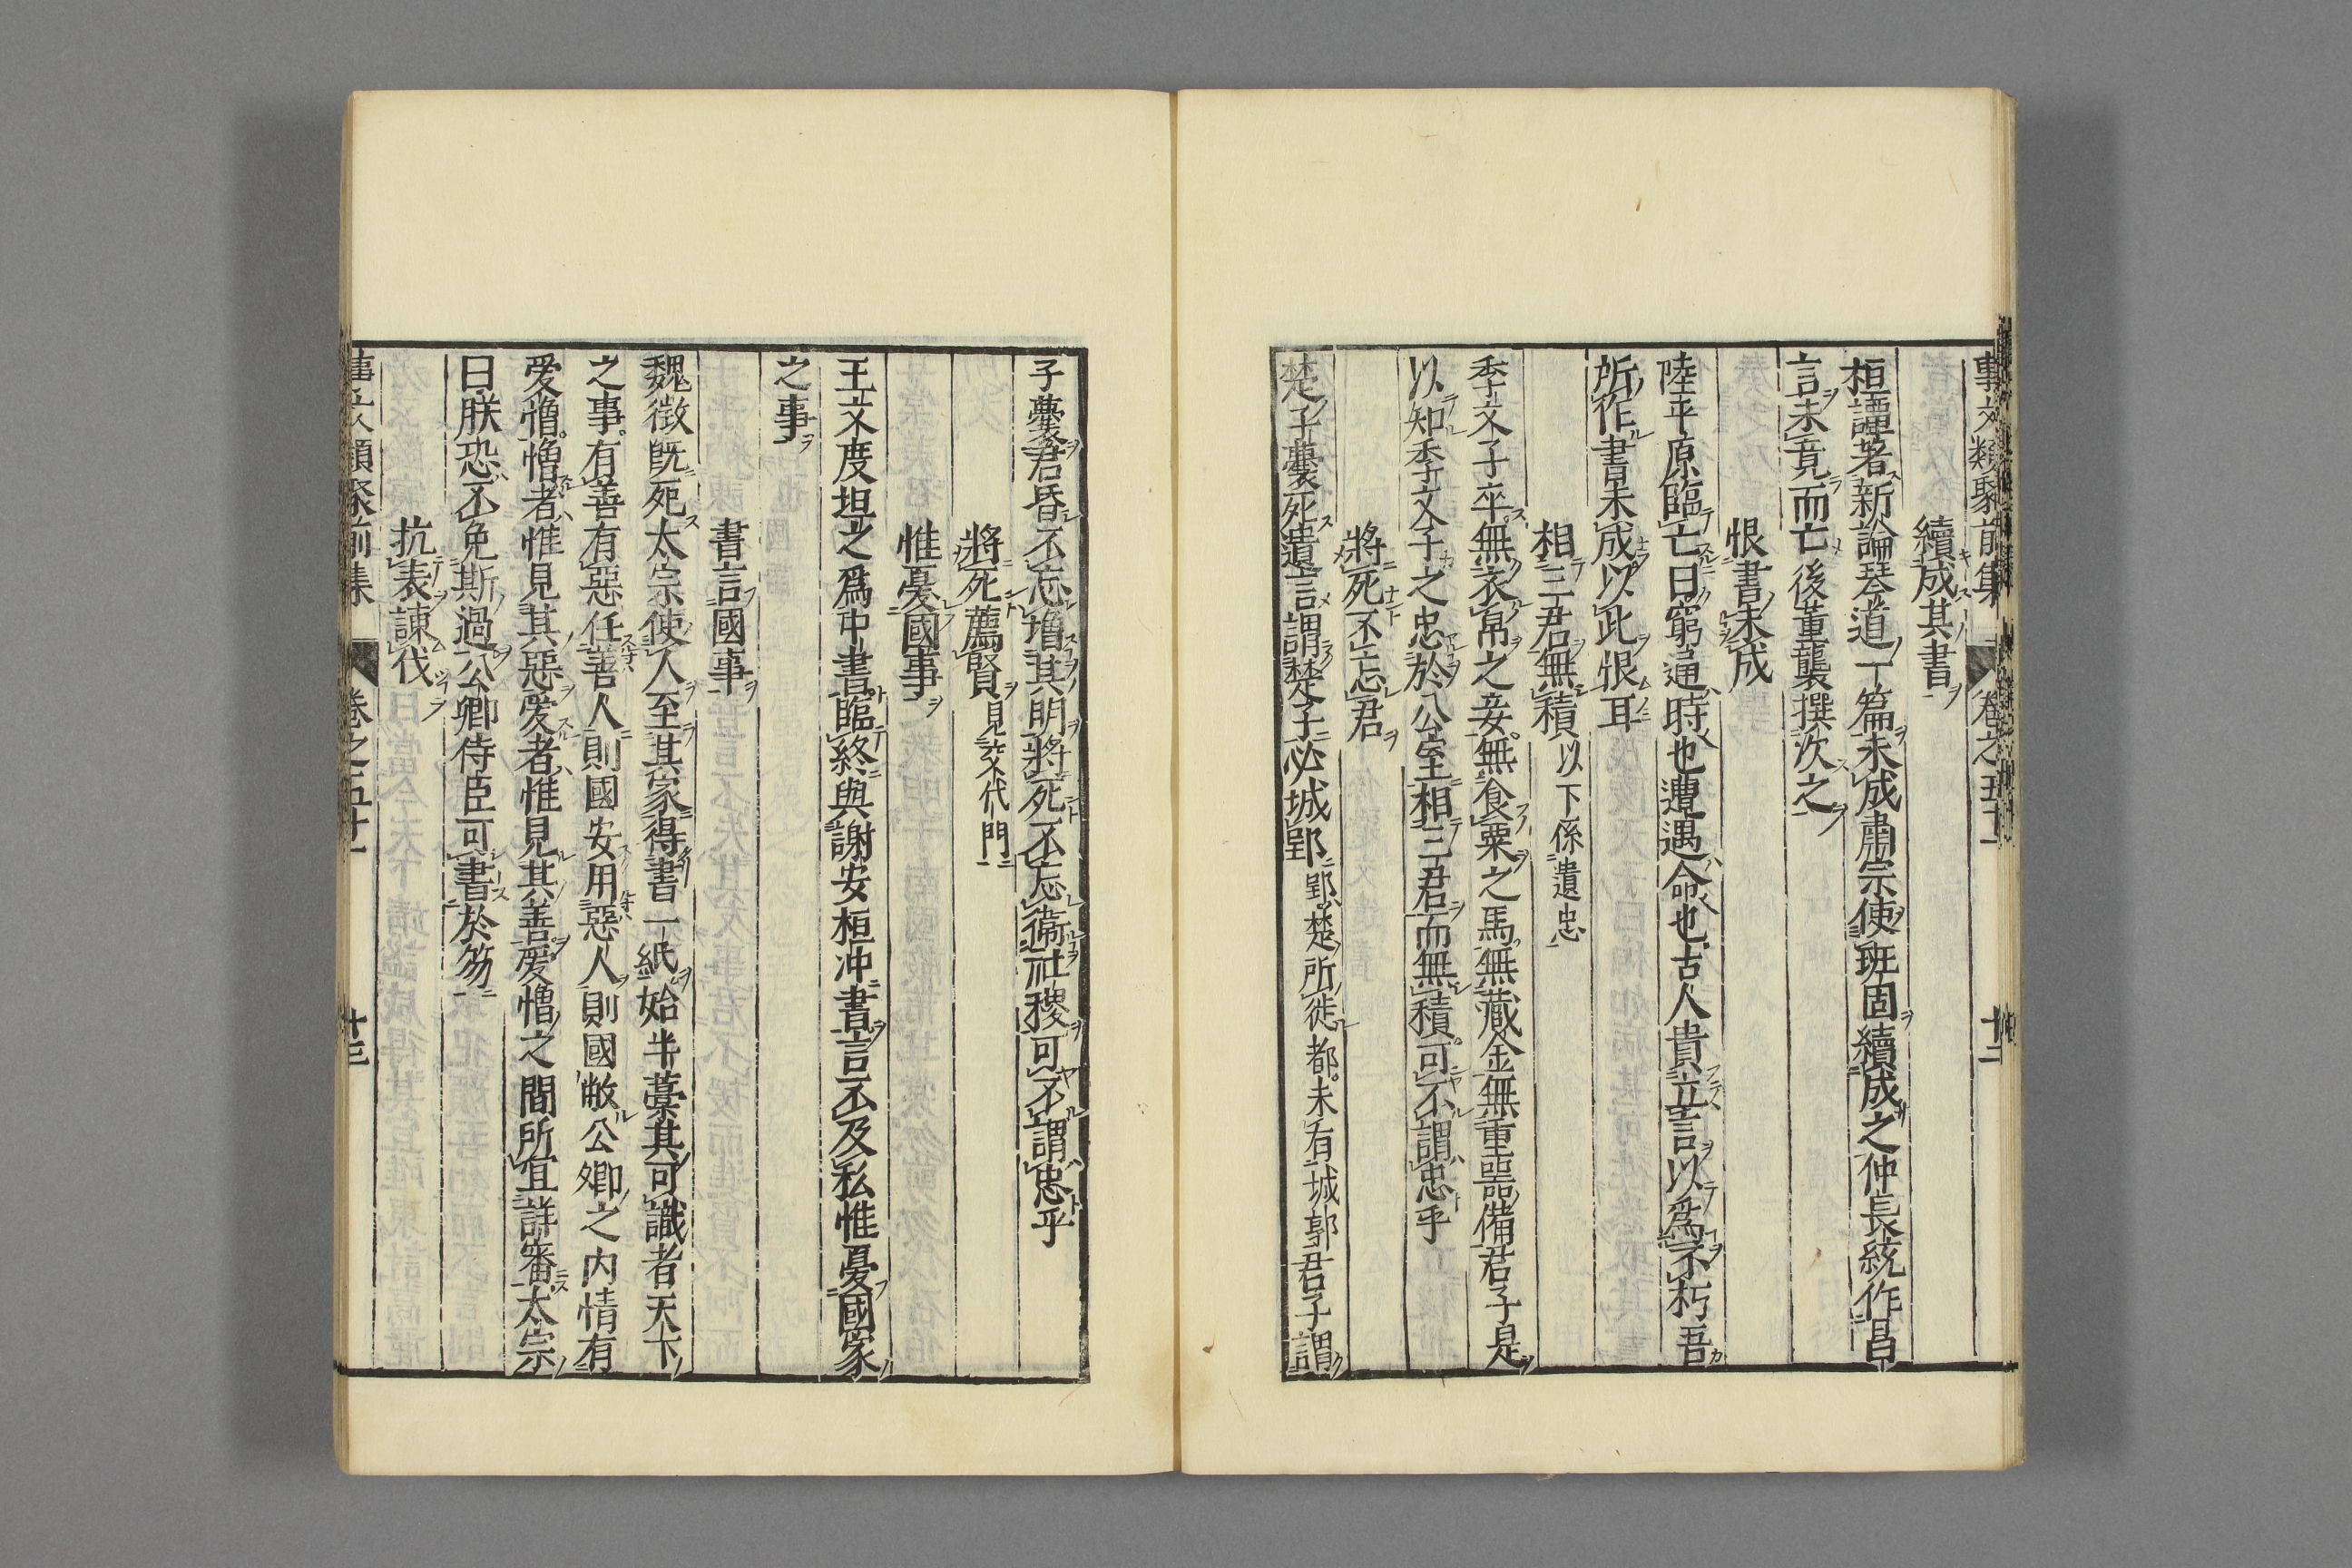 事文類聚前集 卷之五十一 十二
續成其書
桓譚著新論琴道一篇未成肅宗使班固續成之仲長統作昌
言未竟而亡後董襲撰次之
恨書未成
陸平原臨亡曰窮通時也遭遇命也古人貴立言以爲不朽吾
所作書未成以此恨耳
相三君無積以下係遺忠
季文子卒無衣帛之妾無食粟之馬無藏金無重噐備君子是
以知季文子之忠於公室相三君而無積可不謂忠乎
將死不忘君
楚子囊死遺言謂楚子必城郢郢楚所徙都未有城郭君子謂
子囊君昏不忘增其明將死不忘衞社稷可不謂忠乎
將死薦賢見交代門
惟憂國事
王文度坦之爲中書臨終與謝安桓冲書言不及私惟憂國家
之事
書言國事
魏徵旣死太宗使人至其家得書一紙始半藁其可識者天下
之事有善有惡任善人則國安用惡人則國敝公卿之内情有
愛憎憎者惟見其惡愛者惟見其善愛憎之間所宜詳審太宗
曰朕恐不免斯過公卿侍臣可書於笏
抗表諫伐
事文類聚前集 卷之五十一 十三